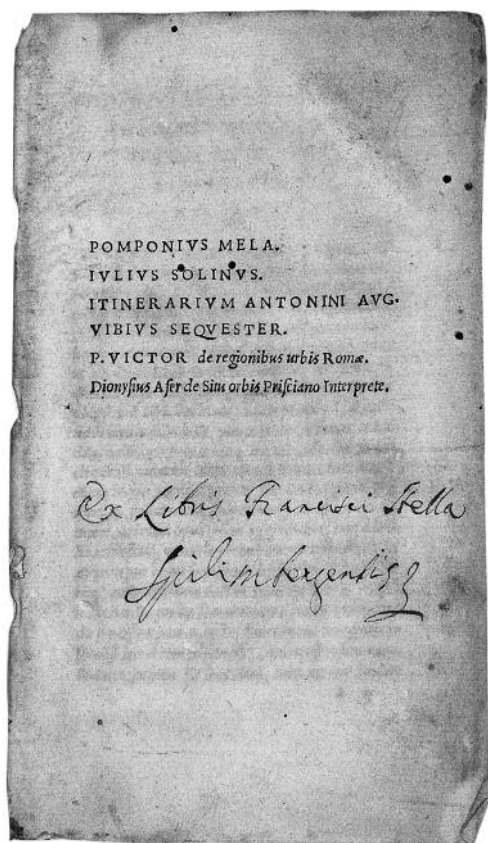 POMPONIVS MELA.
IVLIVS SOLINVS.
ITINERARIVM ANTONINI AVG.
VIBIVS SEQVESTER.
P. VICTOR de regionibus urbis Romæ.
Dionysius Afer de Situ orbis Prisciano Interprete.
Ex Libris Francisci Stella
Spilimbergensis